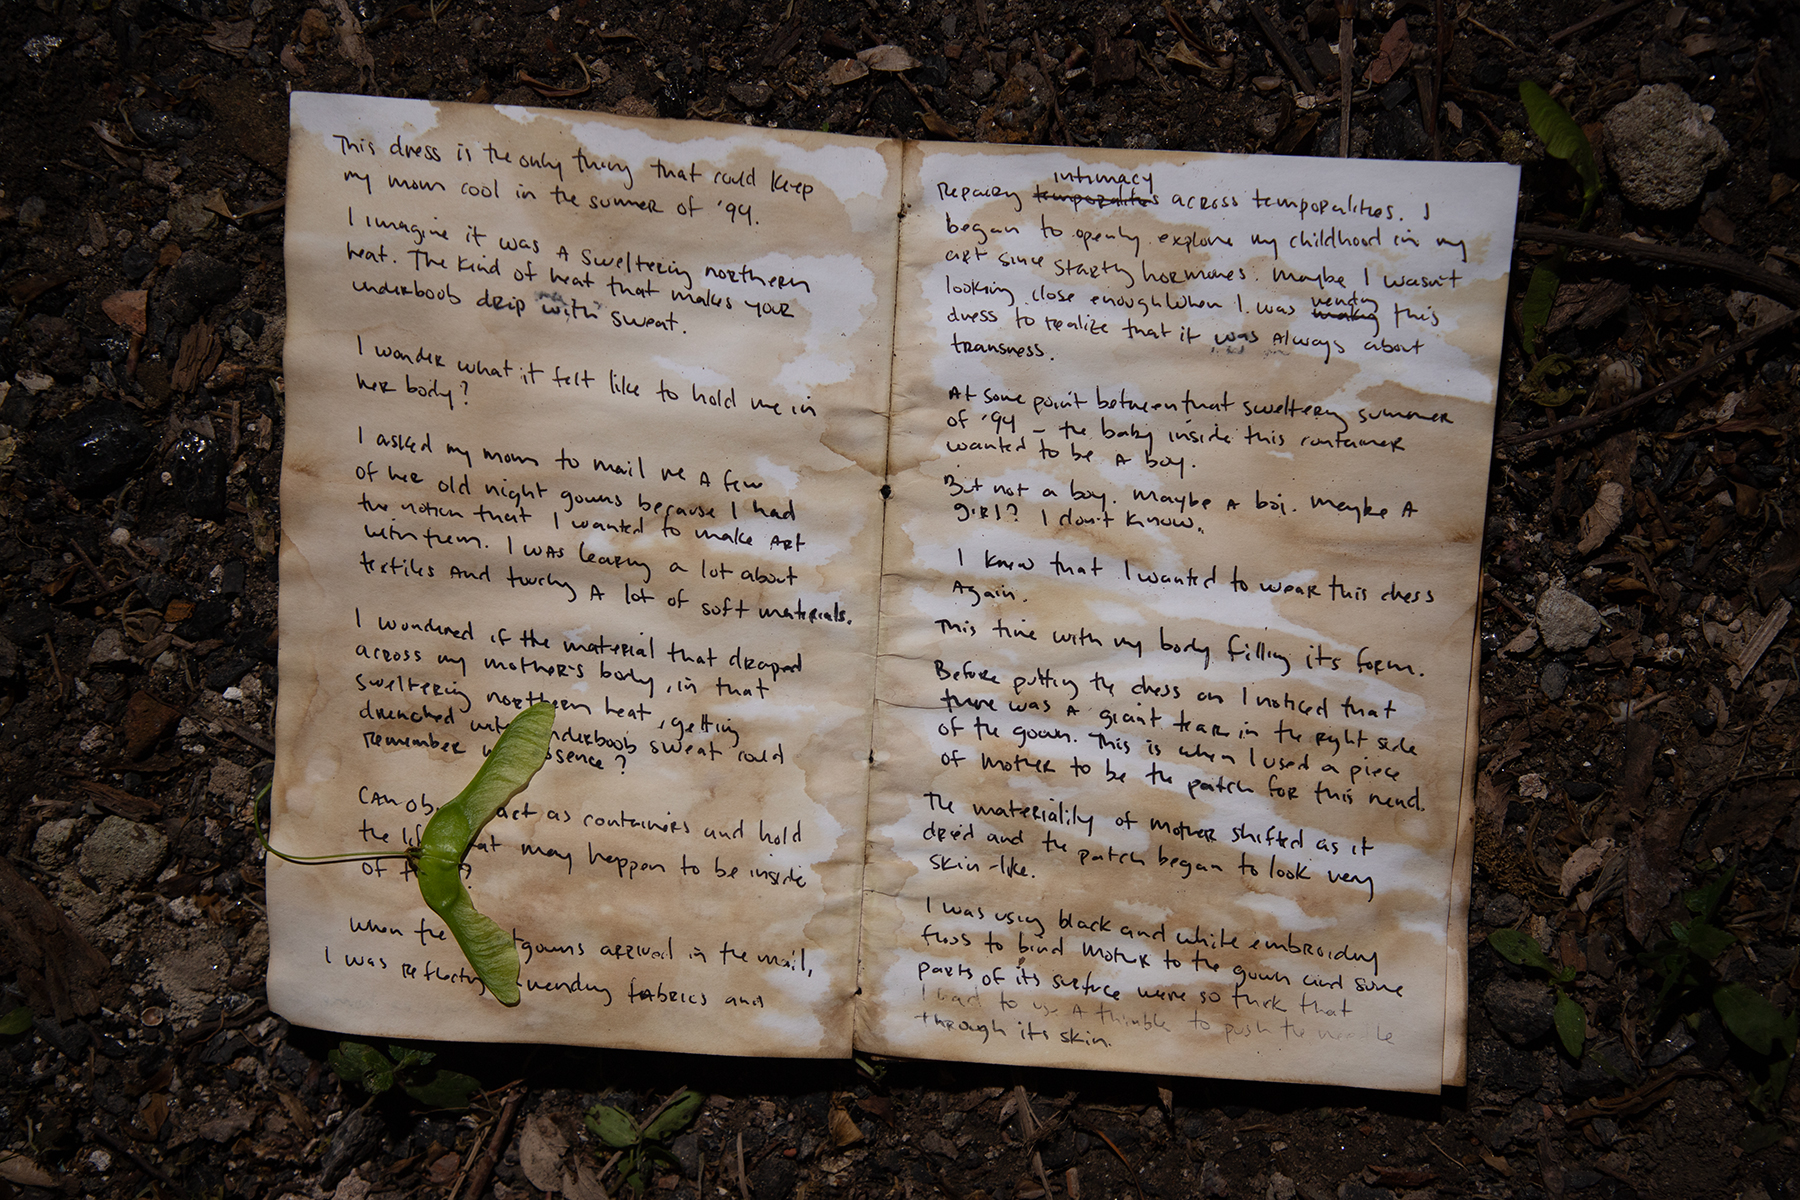 This dress is the only thing that could keep
my mom cool in the summer of '94.
I imagine it was A sweltering northern
heat. The kind of heat that makes your
underboob drip with sweat.
I wonder what it felt like to hold me in
her body?
I asked my mom to mail me A few
of her old night gowns because I had
the notion that I wanted to make ART
with them. I was learning a lot about
textiles And touching A lot of soft materials.
I wondered if the material that draped
across my mother's body, in that
sweltering northern heat, getting
drenched with underboob sweat could
remember
CAN act as containers and hold
the may happen to be inside
of
When the arrived in the mail,
I was reflecting mending fabrics and
Repairing intimacy across temporalities. I
began to openly explore my childhood in my
art since starting hormones. Maybe I wasn't
looking close enough when I was mending this
dress to realize that it was Always about
transness.
At some point between that sweltering summer
of '94 – the baby inside this container
wanted to be A boy.
But not a boy. Maybe A boi. Maybe A
girl? I don't know.
I knew that I wanted to wear this dress
Again.
This time with my body filling its form.
Before putting the dress on I noticed that
there was A giant tear in the right side
of the gown. This is when I used a piece
of Mother to be the patch for this mend.
The materiality of Mother shifted as it
dried and the patch began to look very
skin-like.
I was using black and white embroidery
floss to bind Mother to the gown and some
parts of its surface were so thick that
I had to use A thimble to push the needle
through its skin.